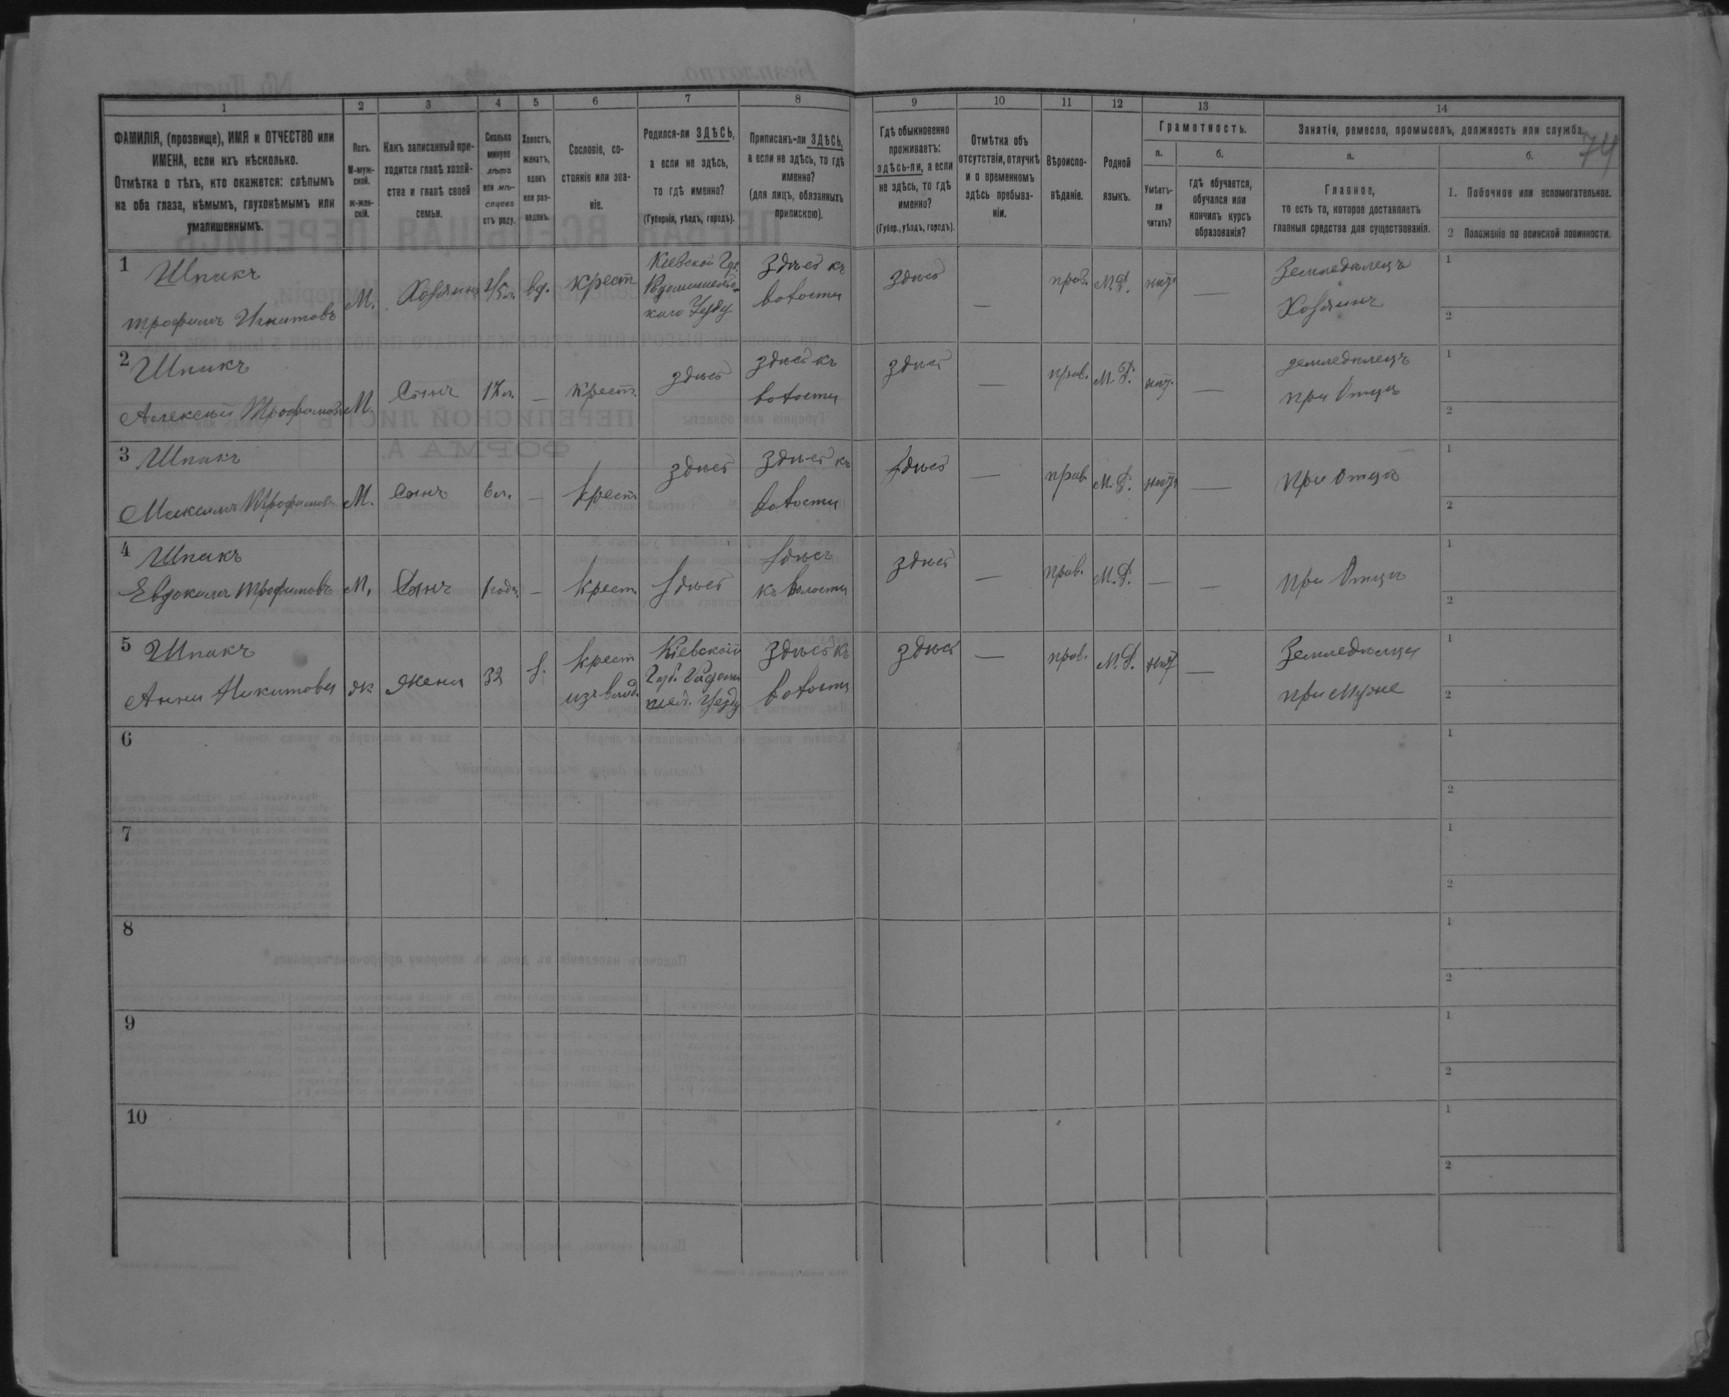 1 2 3 4 5 6 7 8 9 10 11 12 13 14
ФАМИЛІЯ, (прозвище), ИМЯ и ОТЧЕСТВО или
ИМЕНА, если ихъ нѣсколько.
Отмѣтка о тѣхъ, кто окажется: слѣпымъ
на оба глаза, нѣмымъ, глухонѣмымъ или
умалишеннымъ.
Полъ.
М-муж-
ской.
ж-жен-
скій.
Какъ записанный при-
ходится главѣ хозяй-
ства и главѣ своей
семьи.
Сколько
минуло
лѣтъ
или мѣ-
сяцевъ
отъ роду.
Холостъ,
женатъ,
вдовъ
или раз-
веденъ.
Сословіе, со-
стояніе или зва-
ніе.
Родился-ли ЗДѢСЬ,
а если не здѣсь,
то гдѣ именно?
(Губернія, уѣздъ, городъ).
Приписанъ-ли ЗДѢСЬ,
а если не здѣсь, то гдѣ
именно?
(для лицъ, обязанныхъ
припискою).
Гдѣ обыкновенно
проживаетъ:
здѣсь-ли, а если
не здѣсь, то гдѣ
именно?
(Губер., уѣздъ, городъ).
Отмѣтка объ
отсутствіи, отлучкѣ
и о временномъ
здѣсь пребыва-
ніи.
Вѣроиспо-
вѣданіе.
Родной
языкъ.
Грамотность.
а.
Умѣетъ-
ли
читать?
б.
гдѣ обучается,
обучался или
кончилъ курсъ
образованія?
Занятіе, ремесло, промыселъ, должность или служба.
74
а.
Главное,
то есть то, которое доставляетъ
главныя средства для существованія.
б.
1. Побочное или вспомогательное.
2 Положеніе по воинской повинности.
1 Шпакъ
Трофимъ Никитовъ
М. Хозяинъ вд. крест
Кіевской Губ.
каго Уезду
здѣсь къ
волости
здѣсь — прав. М.Р. нѣт —
Земледѣлецъ
Хозяинъ
1
2
2 Шпакъ
Алексѣй Трофимовъ
М. Сынъ — крест. здѣсь
здѣсь къ
волости
здѣсь — прав. М.Р. нѣт. —
земледѣлецъ
при Отцѣ
1
2
3 Шпакъ
Максимъ Трофимовъ
М. Сынъ 6 л. — крест здѣсь
здѣсь къ
волости
здѣсь — прав. М.Р. нѣт —
при Отцѣ
1
2
4 Шпакъ
Евдокимъ Трофимовъ
М. Сынъ 1 годъ — крест здѣсь
здѣсь
къ волости
здѣсь — прав. М.Р. — —
при Отцѣ
1
2
5 Шпакъ
Анна Никитова
ж жена 32 з.
крест
из влад.
Кіевской
Губ.
Уезду
здѣсь къ
волости
здѣсь — прав. М.Р. нѣт —
Земледѣлица
при Муже
1
2
6
1
2
7
1
2
8
1
2
9
1
2
10
1
2